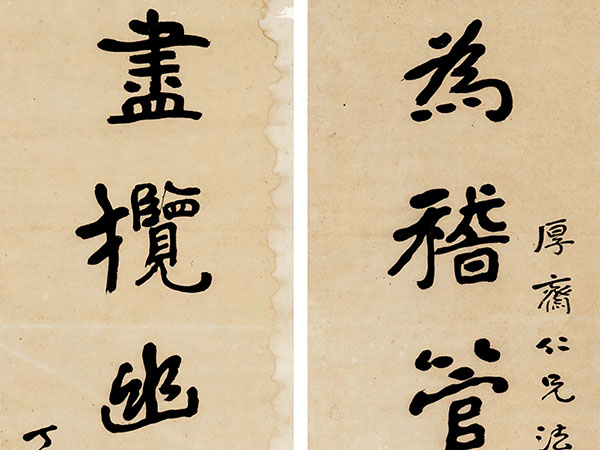 厚齋仁兄法
為稽管
盡攬幽
丁